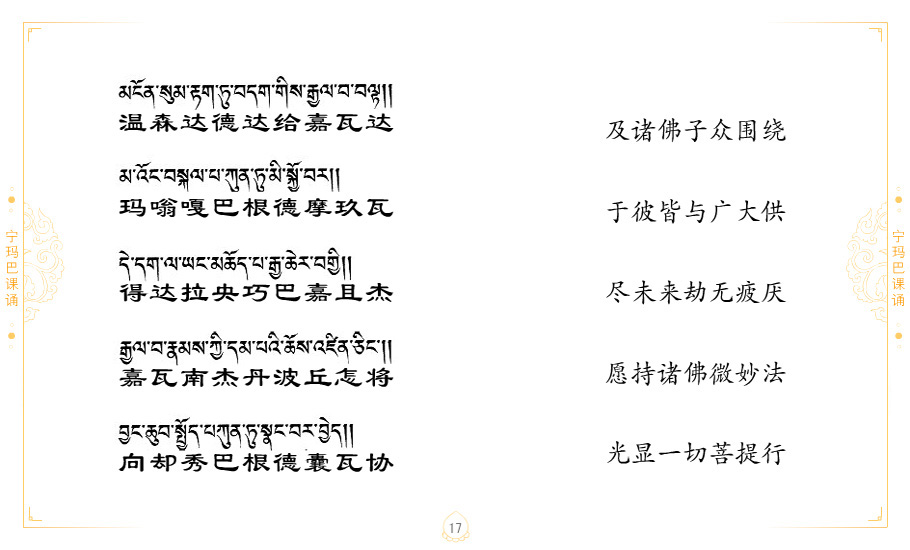 མངོན་སུམ་རྟག་ཏུ་བདག་གིས་རྒྱལ་བ་བལྟ།།
温森达德达给嘉瓦达
མ་འོང་བསྐལ་པ་ཀུན་ཏུ་མི་སྐྱོ་བར།།
玛嗡嘎巴根德摩玖瓦
དེ་དག་ལ་ཡང་མཆོད་པ་རྒྱ་ཆེར་བགྱི།།
得达拉央巧巴嘉且杰
རྒྱལ་བ་རྣམས་ཀྱི་དམ་པའི་ཆོས་འཛིན་ཅིང་།།
嘉瓦南杰丹波丘怎将
བྱང་ཆུབ་སྤྱོད་པ་ཀུན་ཏུ་སྣང་བར་བྱེད།།
向却秀巴根德囊瓦协
及诸佛子众围绕
于彼皆与广大供
尽未来劫无疲厌
愿持诸佛微妙法
光显一切菩提行
宁玛巴课诵
宁玛巴课诵
17